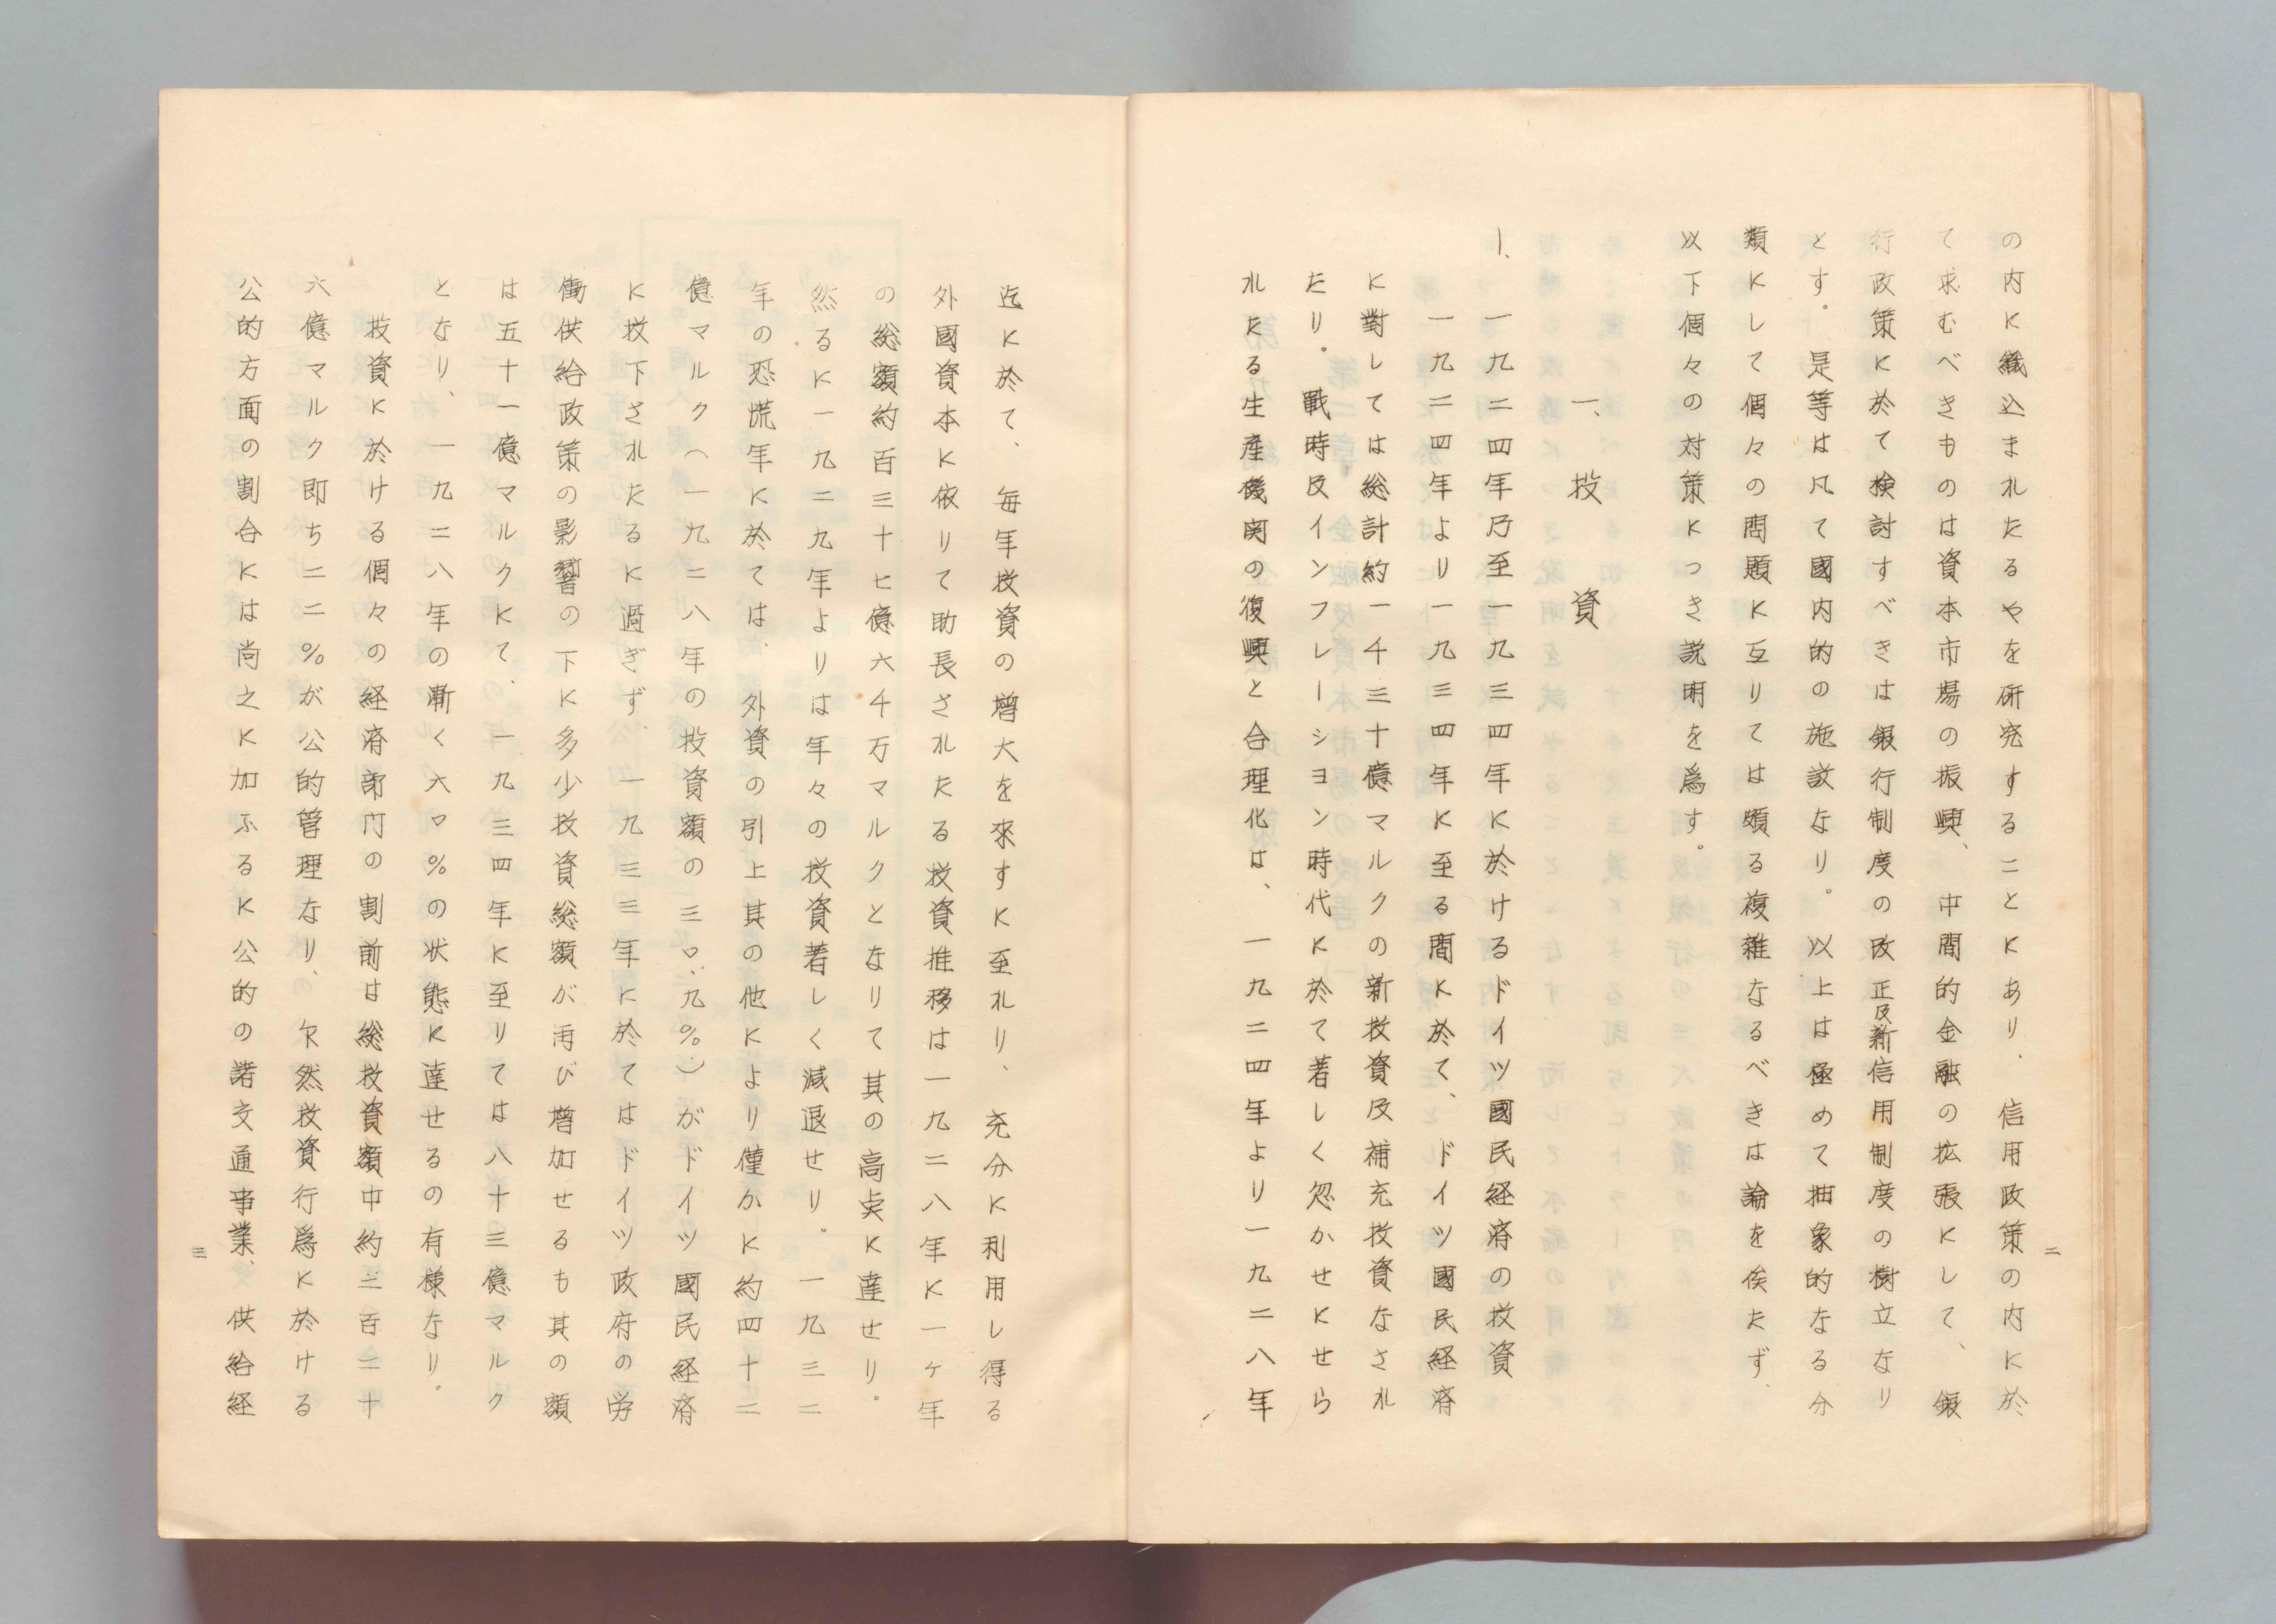 の内に織込まれたるやを研究することにあり、信用政策の内に於
て求むべきものは資本市場の振興、中間的金融の拡張にして、銀
行政策に於て検討すべきは銀行制度の改正及新信用制度の樹立なり
とす。是等は凡て國内的の施設なり。以上は極めて抽象的なる分
類にして個々の問題に亙りては頗る複雑なるべきは論を俟たず、
以下個々の対策につき説明を爲す。
一、投資
1、一九二四年乃至一九三四年に於けるドイツ國民経済の投資
一九二四年より一九三四年に至る間に於て、ドイツ國民経済
に對しては総計約一千三十億マルクの新投資及補充投資なされ
たり。戰時及インフレーション時代に於て著しく忽かせにせら
れたる生産機関の復興と合理化は、一九二四年より一九二八年
二
迄に於て、毎年投資の増大を來すに至れり、充分に利用し得る
外國資本に依りて助長されたる投資推移は一九二八年に一ヶ年
の総額約百三十七億六千万マルクとなりて其の高点に達せり。
然るに一九二九年よりは年々の投資著しく減退せり。一九三二
年の恐慌年に於ては、外資の引上其の他により僅かに約四十二
億マルク（一九二八年の投資額の三〇、九％）がドイツ國民経済
に投下されたるに過ぎず、一九三三年に於てはドイツ政府の労
働供給政策の影響の下に多少投資総額が再び増加せるも其の額
は五十一億マルクにて、一九三四年に至りては八十三億マルク
となり、一九二八年の漸く六〇％の状態に達せるの有様なり。
投資に於ける個々の経済部門の割前は総投資額中約三百二十
六億マルク即ち二二％が公的管理なり、欠然投資行爲に於ける
公的方面の割合には尚之に加ふるに公的の諸交通事業、供給経
三